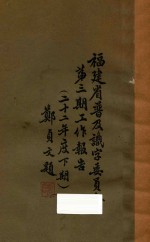 福建省普及識字委員
第三期工作報告
(二十二年度下期)
鄭貞文題